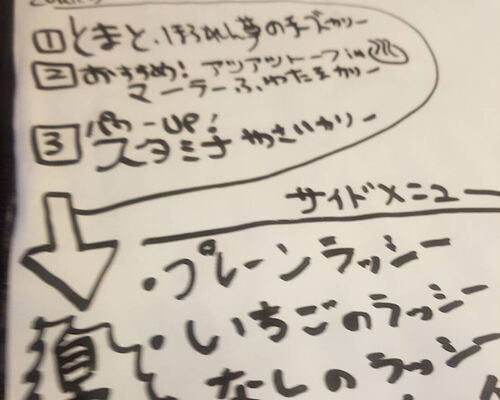 ① とまと、ほうれん草のチーズカリー
② おすすめ! アツアツトーフin
マーラーふわたまカリー
③ パワーUP!
スタミナ やさいカリー
サイドメニュー
・プレーンラッシー
・いちごのラッシー
なしのラッシー